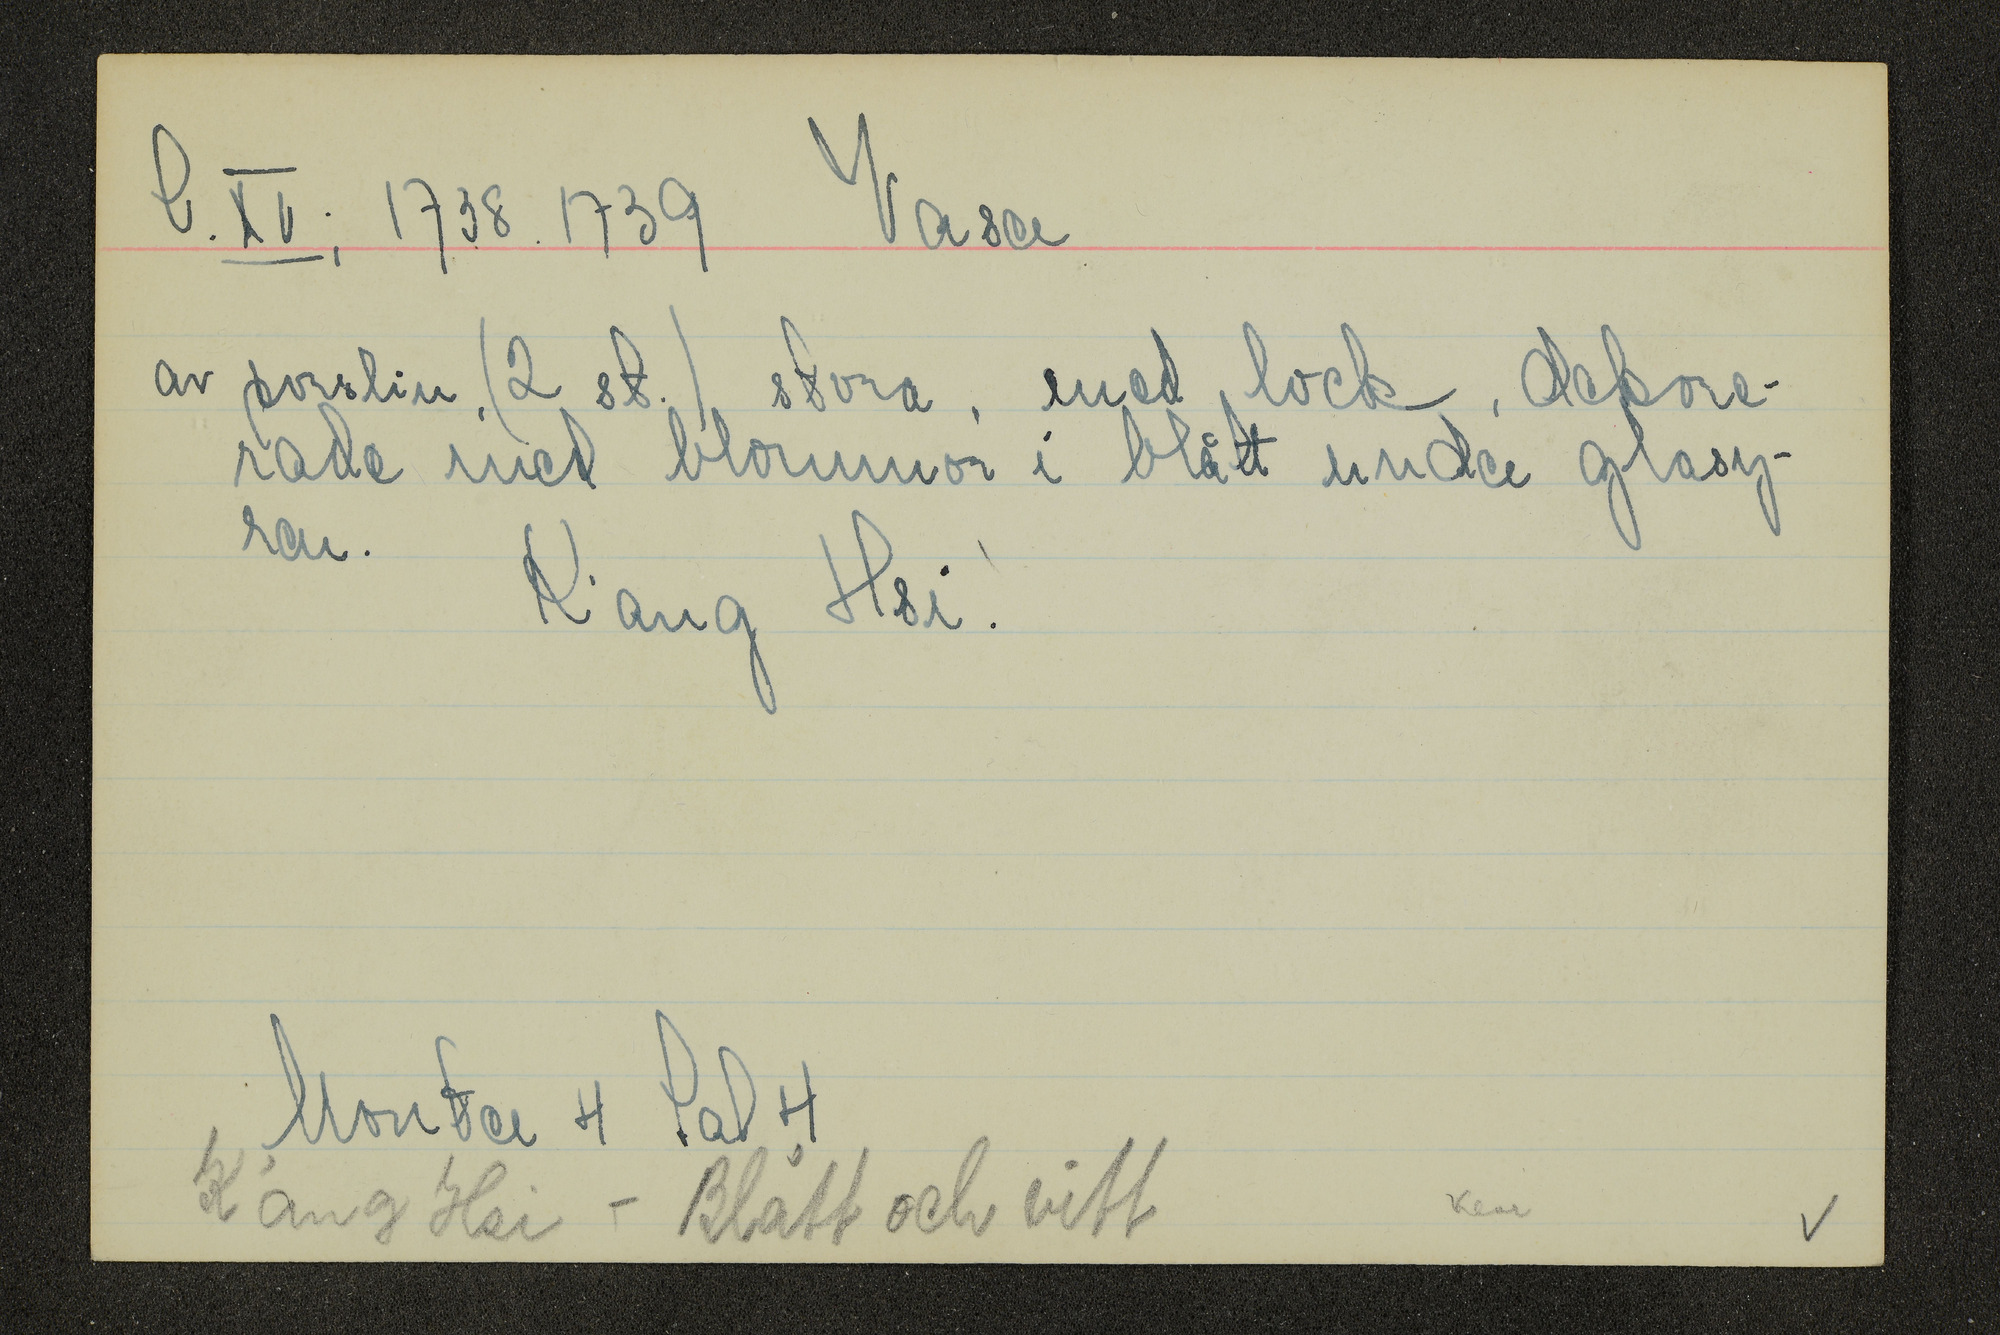 L. XV; 1738. 1739 Vaser
av porslin, (2 st.) stora, med lock, dekore-
rade med blommor i blått under glasy-
ren.
K'ang Hsi.
Monter 4 Sal 4
K'ang Hsi - Blått och vitt